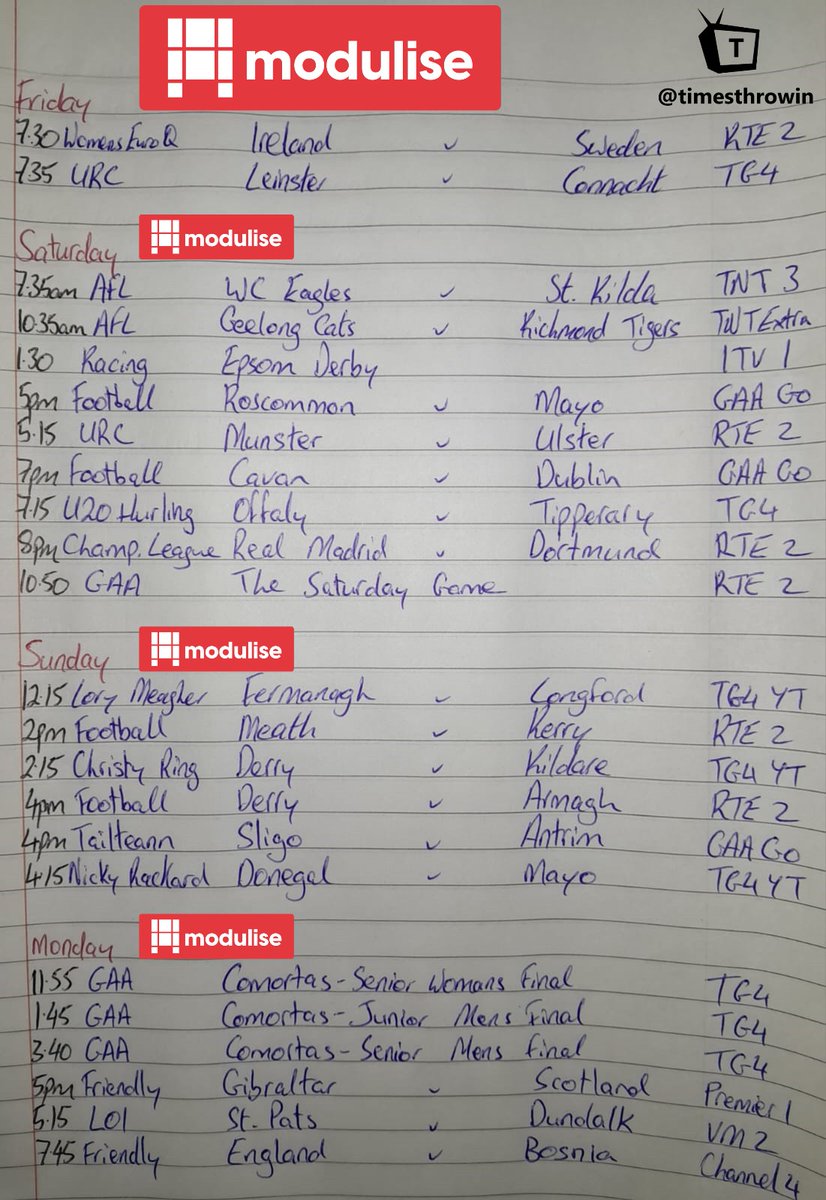 modulise
T
@timesthrowin
Friday
7.30 Womens Euro Q Ireland v Sweden RTE 2
7.35 URC Leinster v Connacht TG4
Saturday modulise
7.35am AFL WC Eagles v St. Kilda TNT 3
10.35am AFL Geelong Cats v Richmond Tigers TNT Extra
1.30 Racing Epsom Derby ITV 1
5pm Football Roscommon v Mayo GAA GO
5.15 URC Munster v Ulster RTE 2
7pm Football Cavan v Dublin GAA GO
7.15 U20 Hurling Offaly v Tipperary TG4
8pm Champ. League Real Madrid v Dortmund RTE 2
10.50 GAA The Saturday Game RTE 2
Sunday modulise
12.15 Lory Meagher Fermanagh v Longford TG4 YT
2pm Football Meath v Kerry RTE 2
2.15 Christy Ring Derry v Kildare TG4 YT
4pm Football Derry v Armagh RTE 2
4pm Tailteann Sligo v Antrim GAA GO
4.15 Nicky Rackard Donegal v Mayo TG4 YT
Monday modulise
11.55 GAA Comortas - Senior Womans Final TG4
1.45 GAA Comortas - Junior Mens Final TG4
3.40 GAA Comortas - Senior Mens Final TG4
5pm Friendly Gibraltar v Scotland Premier 1
5.15 LOI St. Pats v Dundalk VM 2
7.45 Friendly England v Bosnia Channel 4